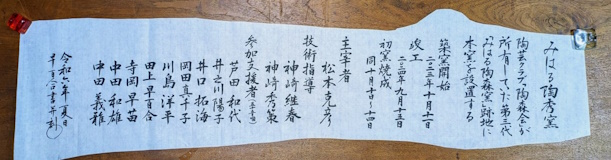 みはる陶秀窯
陶芸クラブ陶森会が
所有していた第三代
みはる陶森窯の跡地に
本窯を設置する
築窯開始
二〇二三年十月十一日
竣工
二〇二四年九月十五日
初窯焼成
同十月十日〜十四日
主宰者
松本克彦
技術指導
神崎継春
神崎秀策
参加支援者
芦田和代
井之川陽子
井口拓海
岡田真千子
川島洋平
田上早百合
寺岡早苗
中田和雄
中田義雅
令和六年夏日
早百合書